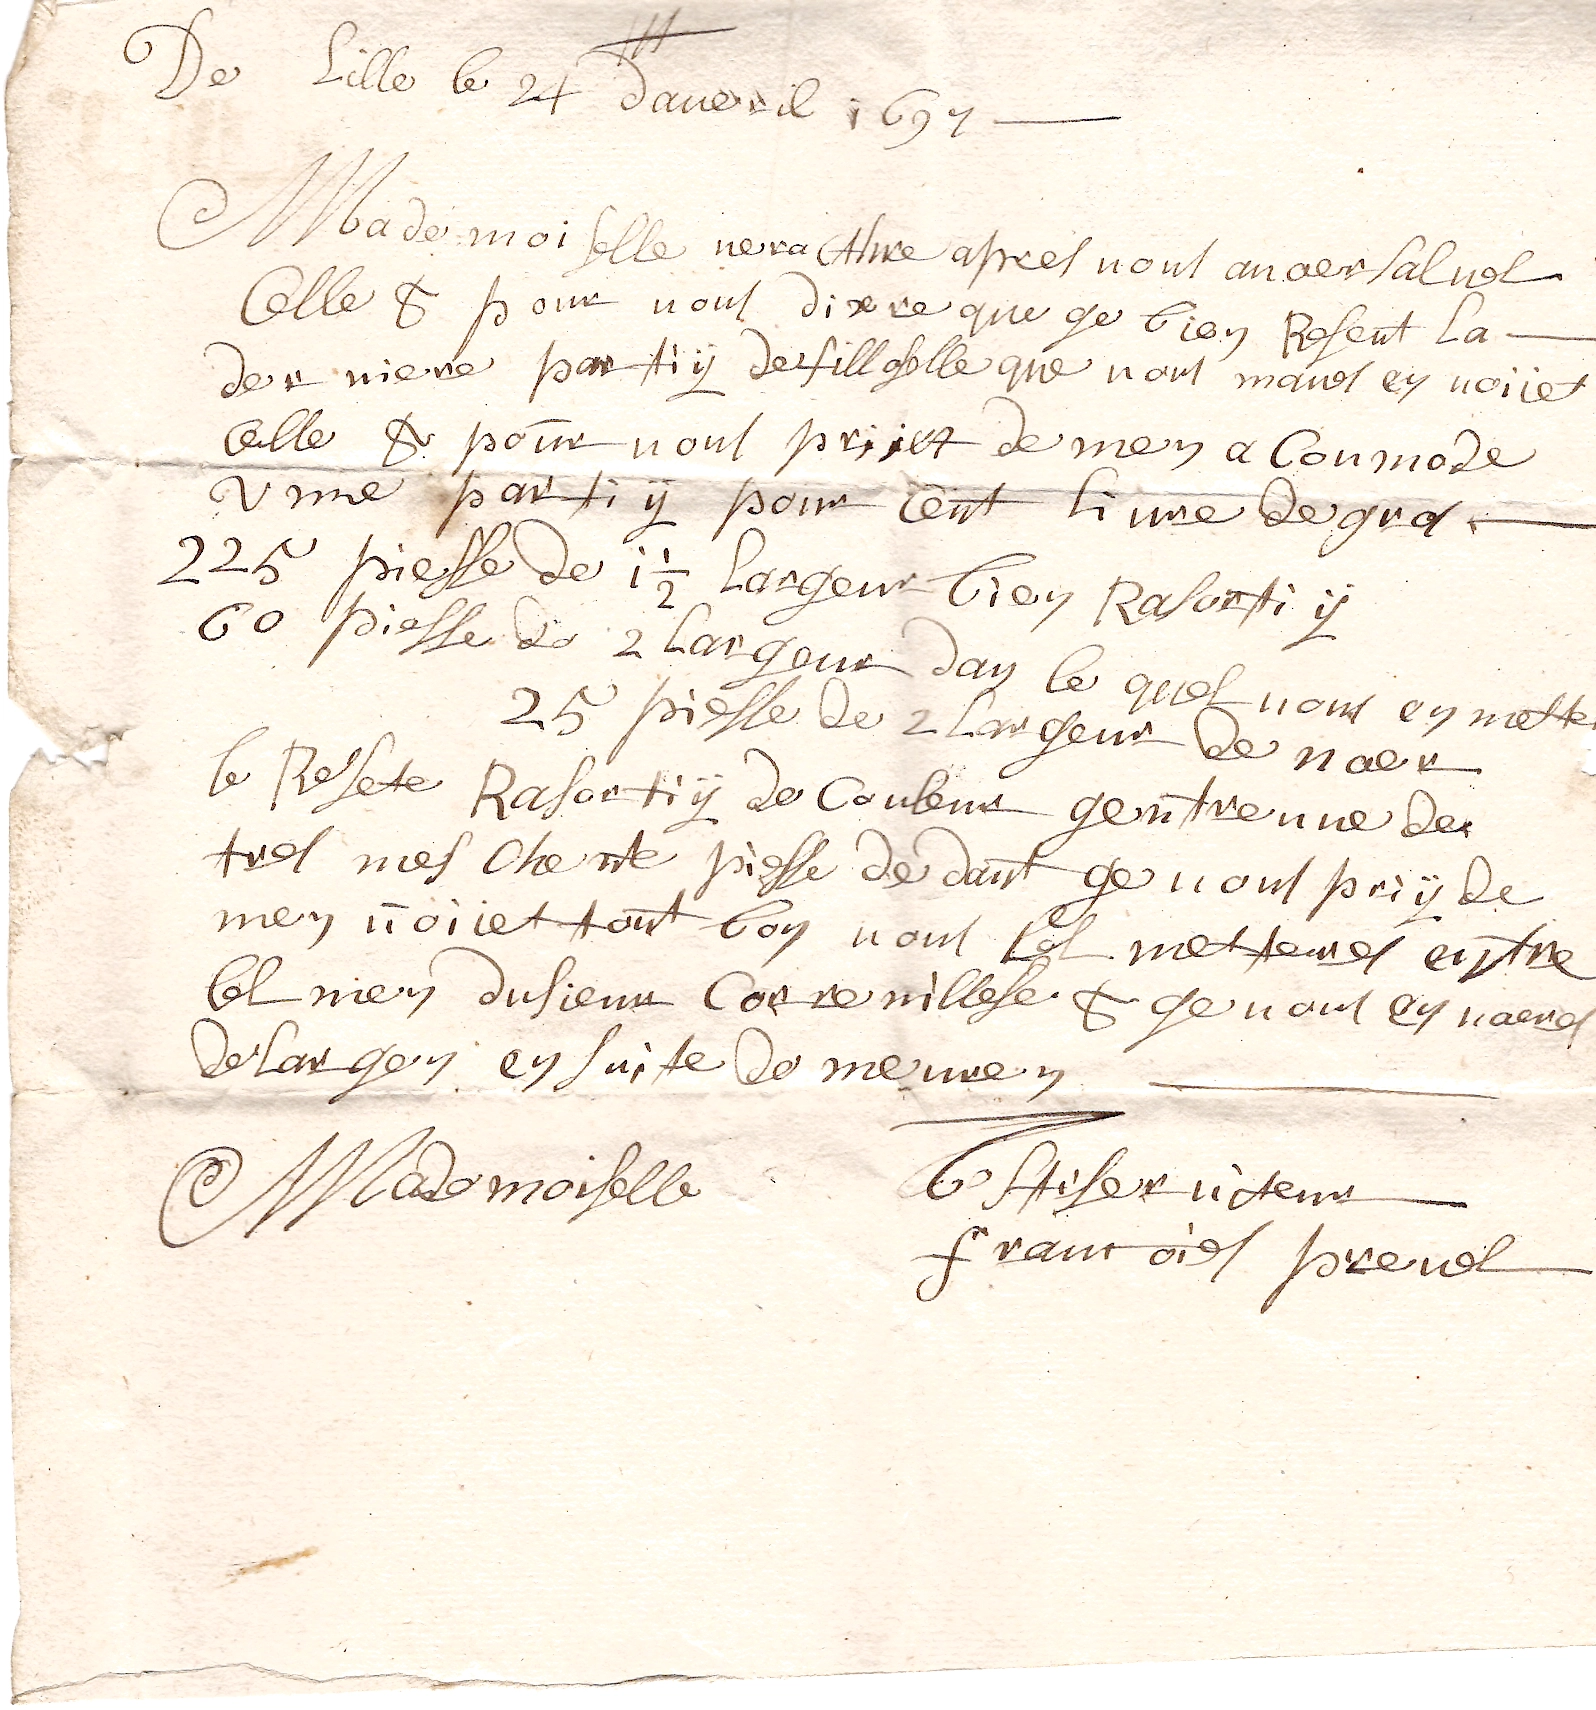 De Lille le 24 daueril 1697
Mademoiselle vera Ahre apres vous auoer salues
Celle & pour vous dixre que ge bien Resent La
der niere partiÿ de filloselle que vous maues en voiiet
celle & pour vous priiet de men a Coumode
vnne partiÿ pour cent liure de gros
225 piesse de 1 1/2 Largeur bien Rasortiÿ
60 piesse de 2 Largeur dan le quel vous en mette
25 piesse de 2 Largeur de noer
le Resete Rasortiÿ de Couleur gentreuue de
tres mes chente piesse dedant ge vous priÿ de
men voiiet tout bon vous les metteres entre
les men du sieur Correnillese & ge vous en vaeres
de largen en suite de meuren
Mademoiselle Vostiseruiteur
francois preuos